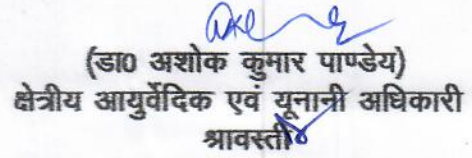 (डा0 अशोक कुमार पाण्डेय)
क्षेत्रीय आयुर्वेदिक एवं यूनानी अधिकारी
श्रावस्ती